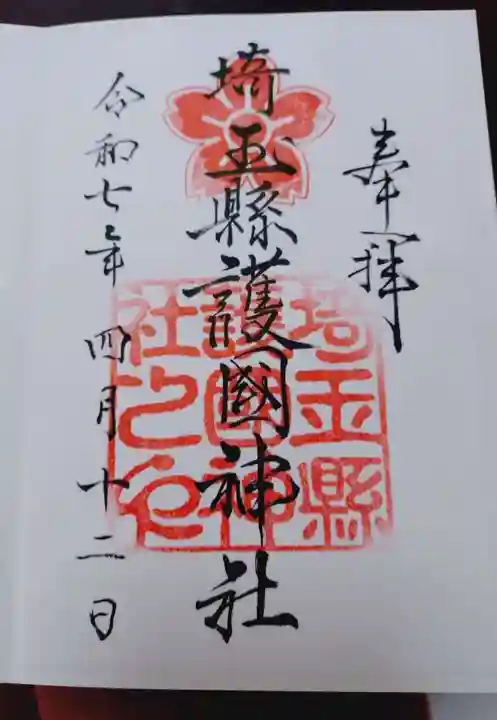 奉拝
埼玉縣護國神社
令和七年四月十二日
埼玉縣
護國神
社之印